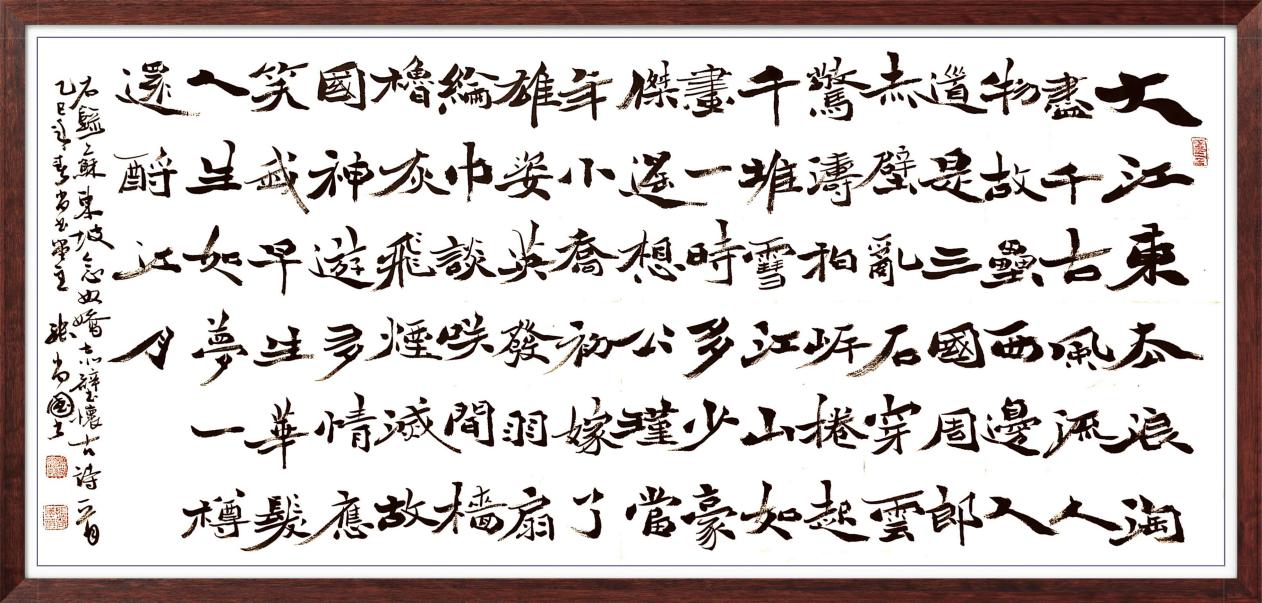 大江東去浪淘
盡千古風流人
物故壘西邊人
道是三國周郎
赤壁亂石穿雲
驚濤拍岸捲起
千堆雪江山如
畫一時多少豪
傑遙想公瑾當
年小喬初嫁了
雄姿英發羽扇
綸巾談咲間檣
櫓灰飛煙滅故
國神遊多情應
笑我早生華髮
人生如夢一樽
還酹江月
右録蘇東坡念奴嬌赤壁懷古詩一首
乙巳年春 張尚國